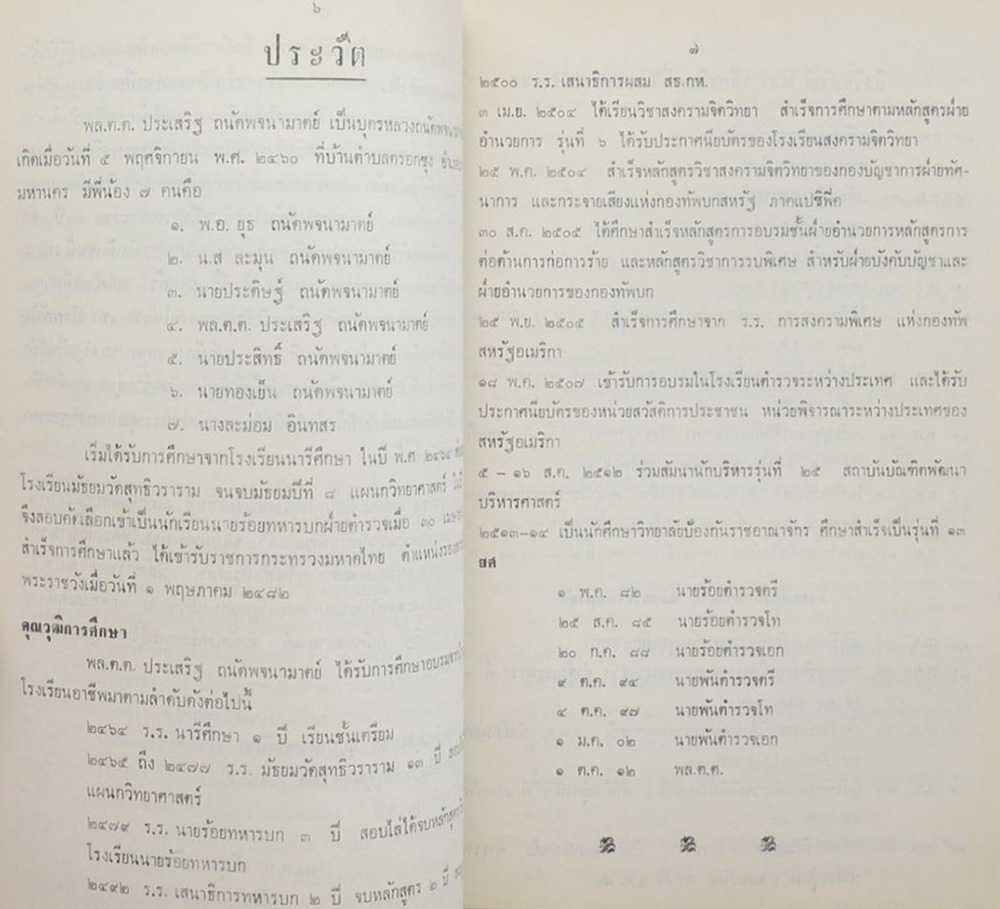 ๖
ประวัติ
พล.ต.ต. ประเสริฐ ถนัดพจนามาตย์ เป็นบุตรหลวงถนัดพจนา
เกิดเมื่อวันที่ ๕ พฤศจิกายน พ.ศ. ๒๔๖๐ ที่บ้านตำบลตรอกซุง
มหานคร มีพี่น้อง ๗ คนคือ
๑. พ.อ. ยุธ ถนัดพจนามาตย์
๒. น.ส ละมุน ถนัดพจนามาตย์
๓. นายประดิษฐ์ ถนัดพจนามาตย์
๔. พล.ต.ต. ประเสริฐ ถนัดพจนามาตย์
๕. นายประสิทธิ์ ถนัดพจนามาตย์
๖. นายทองเย็น ถนัดพจนามาตย์
๗. นางละม่อม อินทสร
เริ่มได้รับการศึกษาจากโรงเรียนนารีศึกษา ในปี พ.ศ ๒๔๖๔
โรงเรียนมัธยมวัดสุทธิวราราม จนจบมัธยมปีที่ ๘ แผนกวิทยาศาสตร์
จึงสอบคัดเลือกเข้าเป็นนักเรียนนายร้อยทหารบกฝ่ายตำรวจเมื่อ ๓๐
สำเร็จการศึกษาแล้ว ได้เข้ารับราชการกระทรวงมหาดไทย ตำแหน่งรอง
พระราชวังเมื่อวันที่ ๑ พฤษภาคม ๒๔๘๒
คุณวุฒิการศึกษา
พล.ต.ต. ประเสริฐ ถนัดพจนามาตย์ ได้รับการศึกษาอบรมจาก
โรงเรียนอาชีพมาตามลำดับดังต่อไปนี้
๒๔๖๔ ร.ร. นารีศึกษา ๑ ปี เรียนชั้นเตรียม
๒๔๖๕ ถึง ๒๔๗๗ ร.ร. มัธยมวัดสุทธิวราราม ๑๓ ปี
แผนกวิทยาศาสตร์
๒๔๗๙ ร.ร. นายร้อยทหารบก ๓ ปี สอบไล่ได้จบหลักสูตร
โรงเรียนนายร้อยทหารบก
๒๔๙๒ ร.ร. เสนาธิการทหารบก ๒ ปี จบหลักสูตร ๒ ปี
๗
๒๕๐๐ ร.ร. เสนาธิการผสม สธ.กห.
๓ เม.ย. ๒๕๐๔ ได้เรียนวิชาสงครามจิตวิทยา สำเร็จการศึกษาตามหลักสูตรฝ่าย
อำนวยการ รุ่นที่ ๖ ได้รับประกาศนียบัตรของโรงเรียนสงครามจิตวิทยา
๒๕ พ.ค. ๒๕๐๔ สำเร็จหลักสูตรวิชาสงครามจิตวิทยาของกองบัญชาการฝ่ายทัศ-
นาการ และกระจายเสียงแห่งกองทัพบกสหรัฐ ภาคแปซิฟิค
๓๐ ส.ค. ๒๕๐๕ ได้ศึกษาสำเร็จหลักสูตรการอบรมชั้นฝ่ายอำนวยการหลักสูตรการ
ต่อต้านการก่อการร้าย และหลักสูตรวิชาการรบพิเศษ สำหรับฝ่ายบังคับบัญชาและ
ฝ่ายอำนวยการของกองทัพบก
๒๕ พ.ย. ๒๕๐๕ สำเร็จการศึกษาจาก ร.ร. การสงครามพิเศษ แห่งกองทัพ
สหรัฐอเมริกา
๑๘ พ.ค. ๒๕๐๗ เข้ารับการอบรมในโรงเรียนตำรวจระหว่างประเทศ และได้รับ
ประกาศนียบัตรของหน่วยสวัสดิการประชาชน หน่วยพิจารณาระหว่างประเทศของ
สหรัฐอเมริกา
๕ - ๑๖ ส.ค. ๒๕๑๒ ร่วมสัมนานักบริหารรุ่นที่ ๒๕ สถาบันบัณฑิตพัฒนา
บริหารศาสตร์
๒๕๑๓-๑๔ เป็นนักศึกษาวิทยาลัยป้องกันราชอาณาจักร ศึกษาสำเร็จเป็นรุ่นที่ ๑๓
ยศ
๑ พ.ค. ๘๒ นายร้อยตำรวจตรี
๒๕ ส.ค. ๘๕ นายร้อยตำรวจโท
๒๐ ก.ค. ๘๘ นายร้อยตำรวจเอก
๙ ต.ค. ๙๔ นายพันตำรวจตรี
๔ ต.ค. ๙๗ นายพันตำรวจโท
๑ ม.ค. ๐๒ นายพันตำรวจเอก
๑ ต.ค. ๑๒ พล.ต.ต.